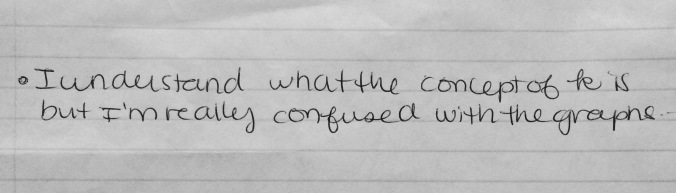 • I understand what the concept of te is
but I'm really confused with the graphs.